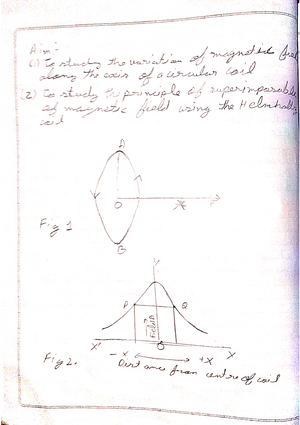 Aim :-
(1) To study the variation of magnetic
along the axis of a circular coil
(2) To study the principle of
of magnetic field using the
coil
A
O
B
Fig 1
Y
P
Q
Field
X'
-X
O
+X
X
Fig 2.
Distance from centre of coil